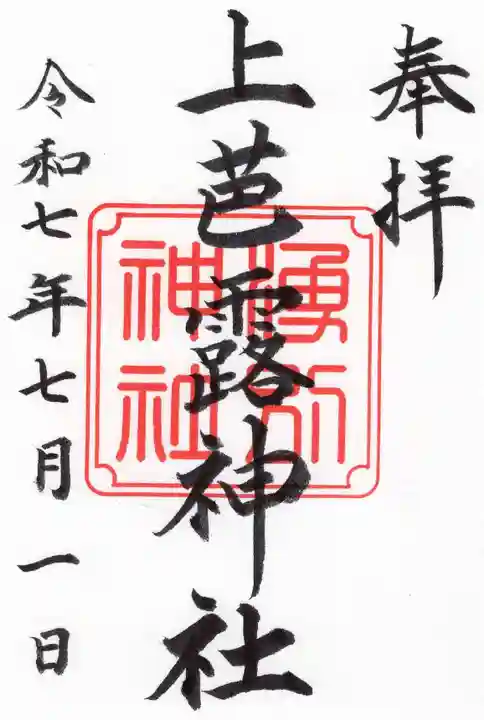 奉拝
上芭露神社
湧別
神社
令和七年七月一日